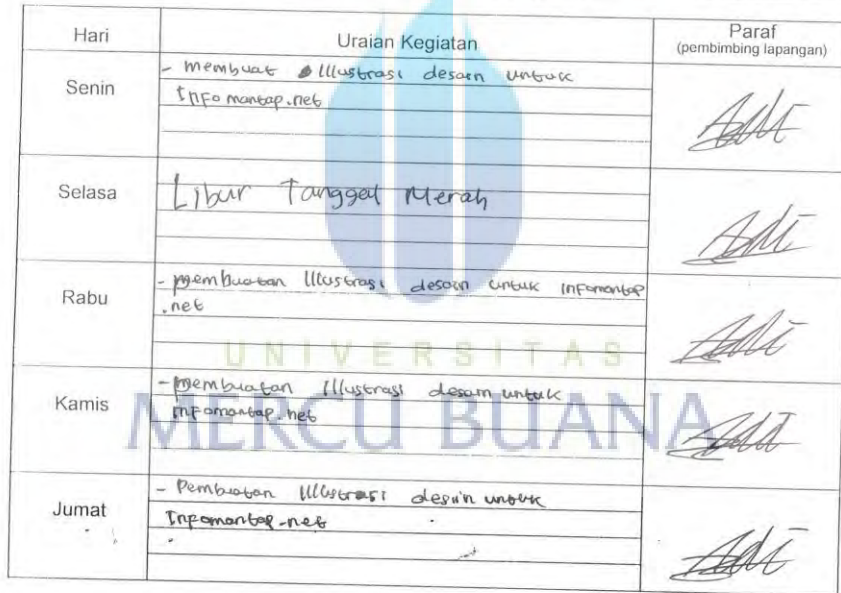 Hari Uraian Kegiatan Paraf
(pembimbing lapangan)
Senin
- membuat Illustrasi desain untuk
Infomantap.net
Selasa
Libur Tanggal Merah
Rabu
- pembuatan Illustrasi desain untuk infomantap
.net
UNIVERSITAS
Kamis
- pembuatan Illustrasi desain untuk
infomantap.net
MERCU BUANA
Jumat
- Pembuatan Illustrasi desain untuk
Infomantap.net